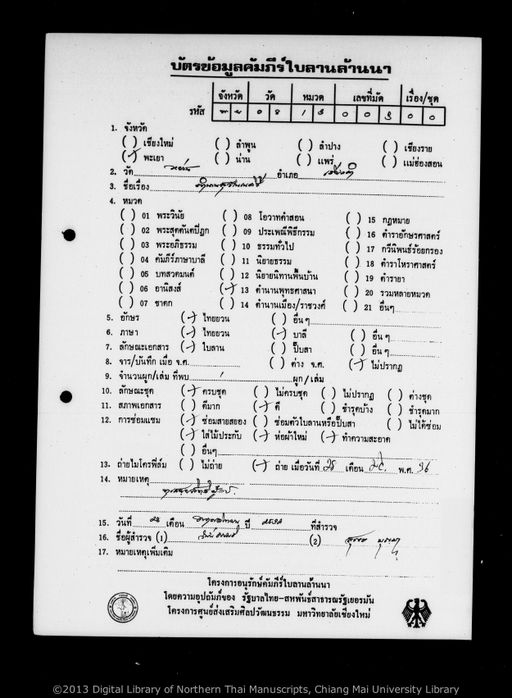 บัตรข้อมูลคัมภีร์ใบลานล้านนา
จังหวัด วัด หมวด เลขที่มัด เรื่อง/ชุด
รหัส
1. จังหวัด
( ) เชียงใหม่ ( ) ลำพูน ( ) ลำปาง ( ) เชียงราย
(✓) พะเยา ( ) น่าน ( ) แพร่ ( ) แม่ฮ่องสอน
2. วัด อำเภอ
3. ชื่อเรื่อง
4. หมวด
( ) 01 พระวินัย ( ) 08 โอวาทคำสอน ( ) 15 กฎหมาย
( ) 02 พระสุตตันตปิฎก ( ) 09 ประเพณีพิธีกรรม ( ) 16 ตำราอักษรศาสตร์
( ) 03 พระอภิธรรม ( ) 10 ธรรมทั่วไป ( ) 17 กวีนิพนธ์ร้อยกรอง
( ) 04 คัมภีร์ภาษาบาลี ( ) 11 นิยายธรรม ( ) 18 ตำราโหราศาสตร์
( ) 05 บทสวดมนต์ ( ) 12 นิยายนิทานพื้นบ้าน ( ) 19 ตำรายา
( ) 06 อานิสงส์ (✓) 13 ตำนานพุทธศาสนา ( ) 20 รวมหลายหมวด
( ) 07 ชาดก ( ) 14 ตำนานเมือง/ราชวงศ์ ( ) 21 อื่นๆ
5. อักษร (✓) ไทยยวน ( ) อื่นๆ
6. ภาษา (✓) ไทยยวน (✓) บาลี ( ) อื่นๆ
7. ลักษณะเอกสาร (✓) ใบลาน ( ) ปั๊บสา ( ) อื่นๆ
8. จาร/บันทึก เมื่อ จ.ศ. ( ) ค่าง จ.ศ. (✓) ไม่ปรากฏ
9. จำนวนผูก/เล่ม ที่พบ ผูก/เล่ม
10. ลักษณะชุด (✓) ครบชุด ( ) ไม่ครบชุด ( ) ไม่ปรากฏ ( ) ค่างชุด
11. สภาพเอกสาร ( ) ดีมาก (✓) ดี ( ) ชำรุดบ้าง ( ) ชำรุดมาก
12. การซ่อมแซม (✓) ซ่อมสายสยอง ( ) ซ่อมตัวใบลานหรือปั๊บสา ( ) ไม่ได้ซ่อม
(✓) ใส่ไม้ประกับ (✓) ห่อผ้าใหม่ (✓) ทำความสะอาด
( ) อื่นๆ
13. ถ่ายไมโครฟิล์ม ( ) ไม่ถ่าย (✓) ถ่าย เมื่อวันที่ เดือน พ.ศ.
14. หมายเหตุ
15. วันที่ เดือน ปี ที่สำรวจ
16. ชื่อผู้สำรวจ (1) (2)
17. หมายเหตุเพิ่มเติม
โครงการอนุรักษ์คัมภีร์ใบลานล้านนา
โดยความอุปถัมภ์ของ รัฐบาลไทย-สหพันธ์สาธารณรัฐเยอรมัน
โครงการศูนย์ส่งเสริมศิลปวัฒนธรรม มหาวิทยาลัยเชียงใหม่
©2013 Digital Library of Northern Thai Manuscripts, Chiang Mai University Library